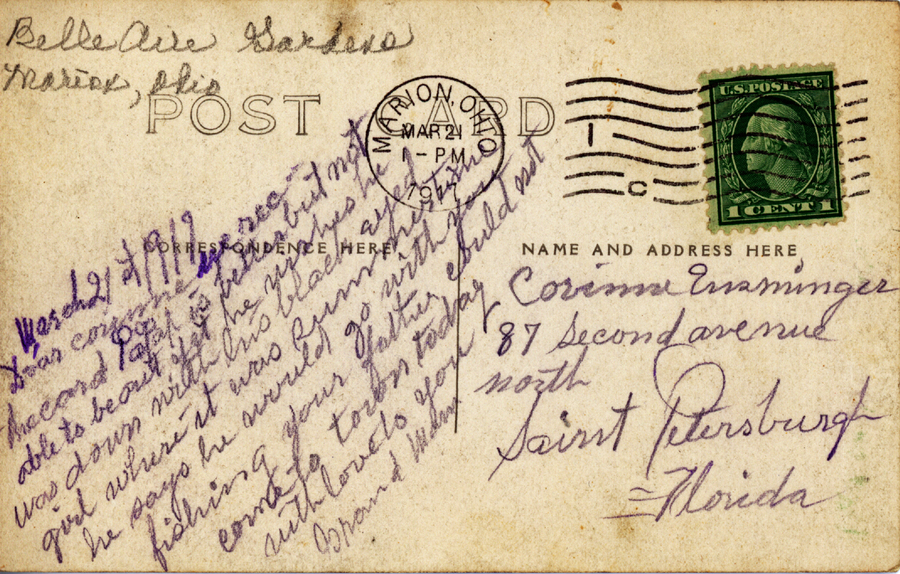 Belle Aire Gardens
Marion, Ohio
POST CARD
MARION, OHIO
MAR 21
1 - PM
1917
1
C
U.S. POSTAGE
1 CENT 1
CORRESPONDENCE HERE
NAME AND ADDRESS HERE
March 21st 1919
Dear corinne we rec
the card Papa is better but not
able to be out yet he wishes he
was down with his black ayed
girl where it was summer time
he says he would go with you
fishing your father could not
come to town today
with love to you
Grand Mam
Corinne Ensminger
87 Second avenue
north
Saint Petersburgh
Florida